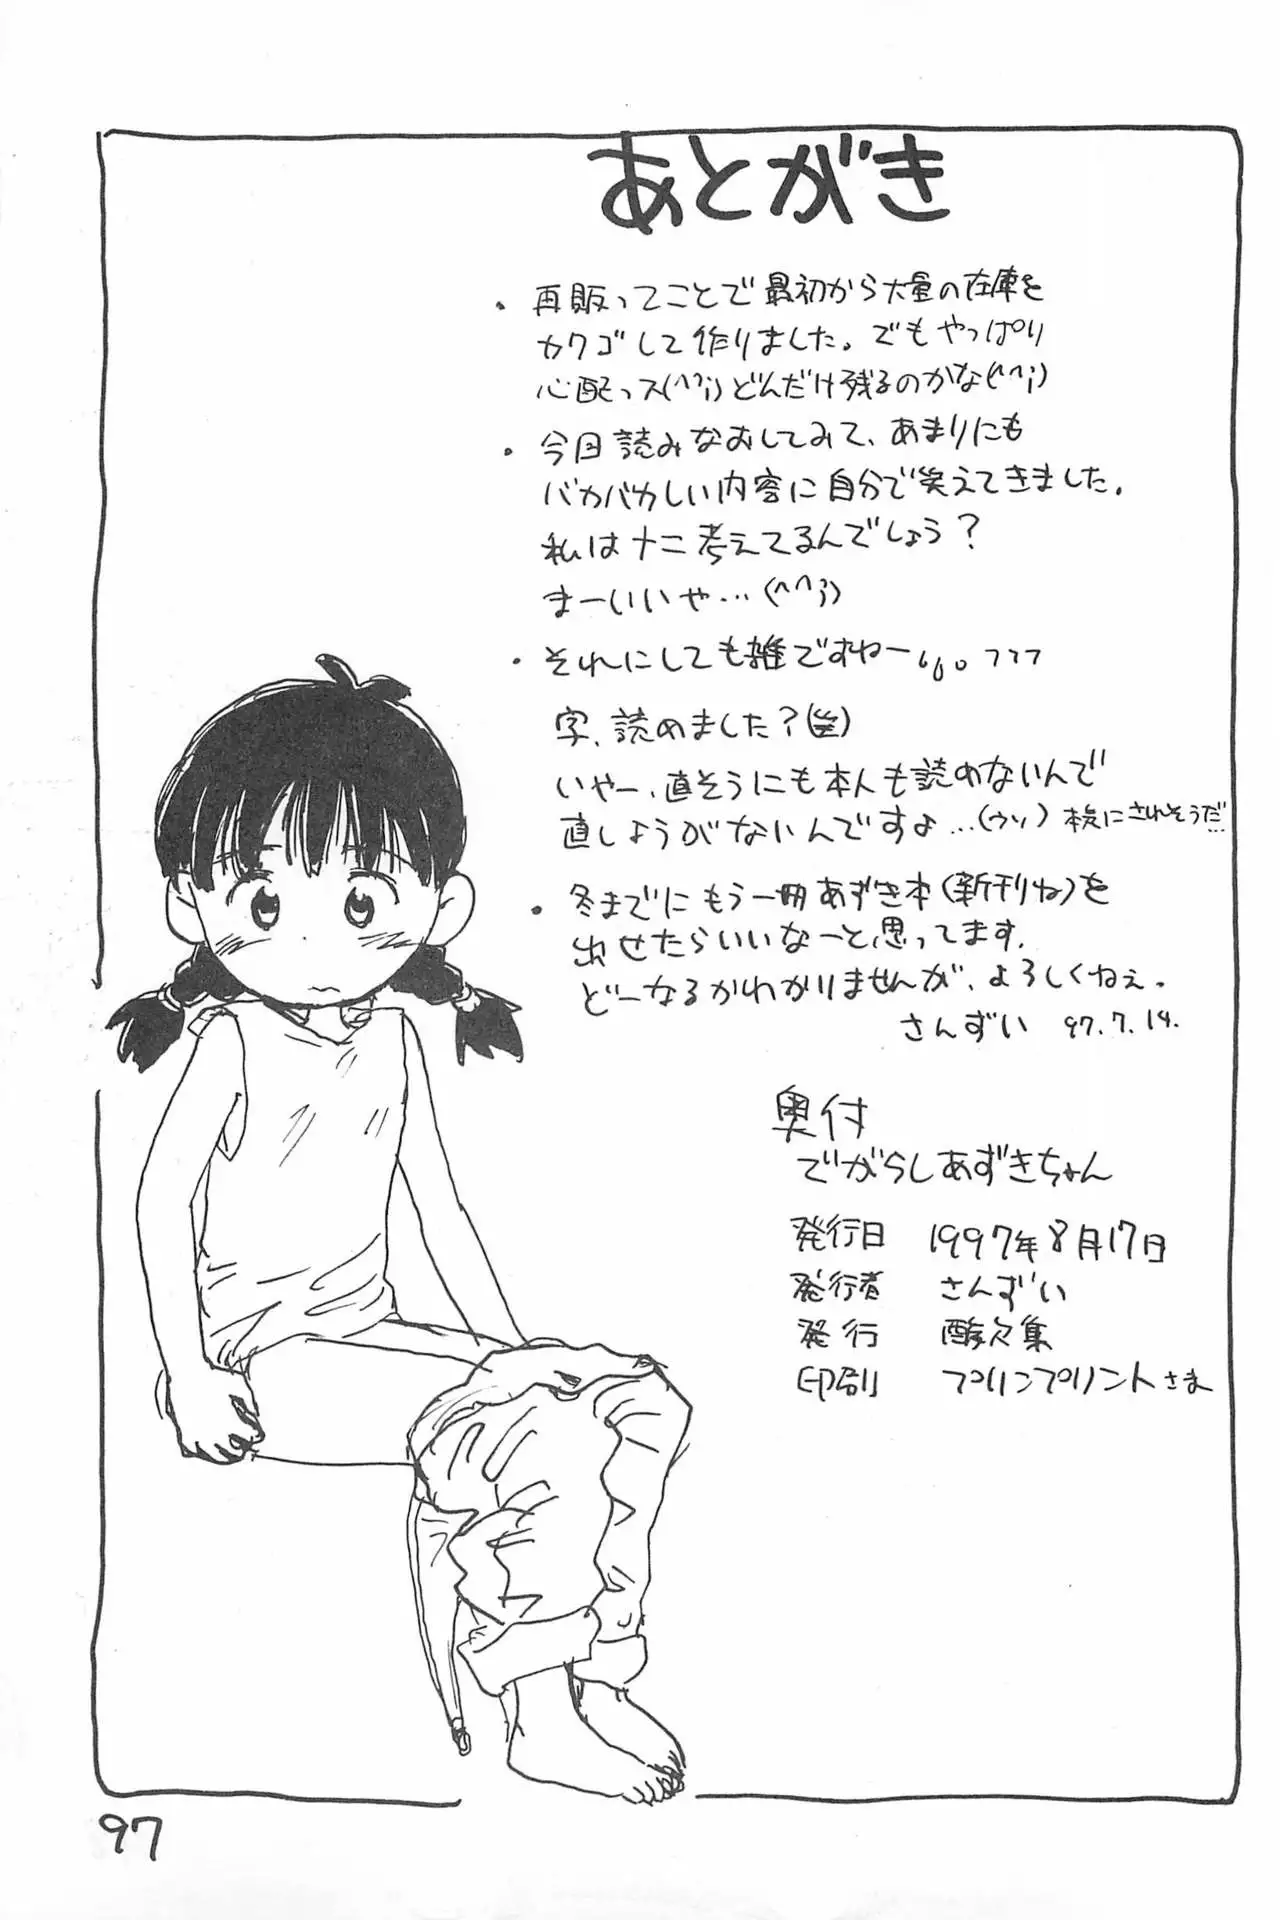 あとがき
・再販ってことで最初から大量の在庫を
カクゴして作りました。でもやっぱり
心配っス(^^;)どんだけ残るのかな(^^;)
・今回読みなおしてみて、あまりにも
バカバカしい内容に自分で笑えてきました。
私はナニ考えてるんでしょう?
まーいいや…(^^;)
・それにしても雑ですねー
字、読めました?(笑)
いやー、直そうにも本人も読めないんで
直しようがないんですよ…(ウソ)本気にされそうだ…
・冬までにもう一冊あずき本(新刊ね)を
出せたらいいなーと思ってます。
どーなるかわかりませんが、よろしくねぇ。
さんずい 97.7.14.
奥付
でがらしあずきちゃん
発行日 1997年8月17日
発行者 さんずい
発行
印刷 プリンプリントさま
97